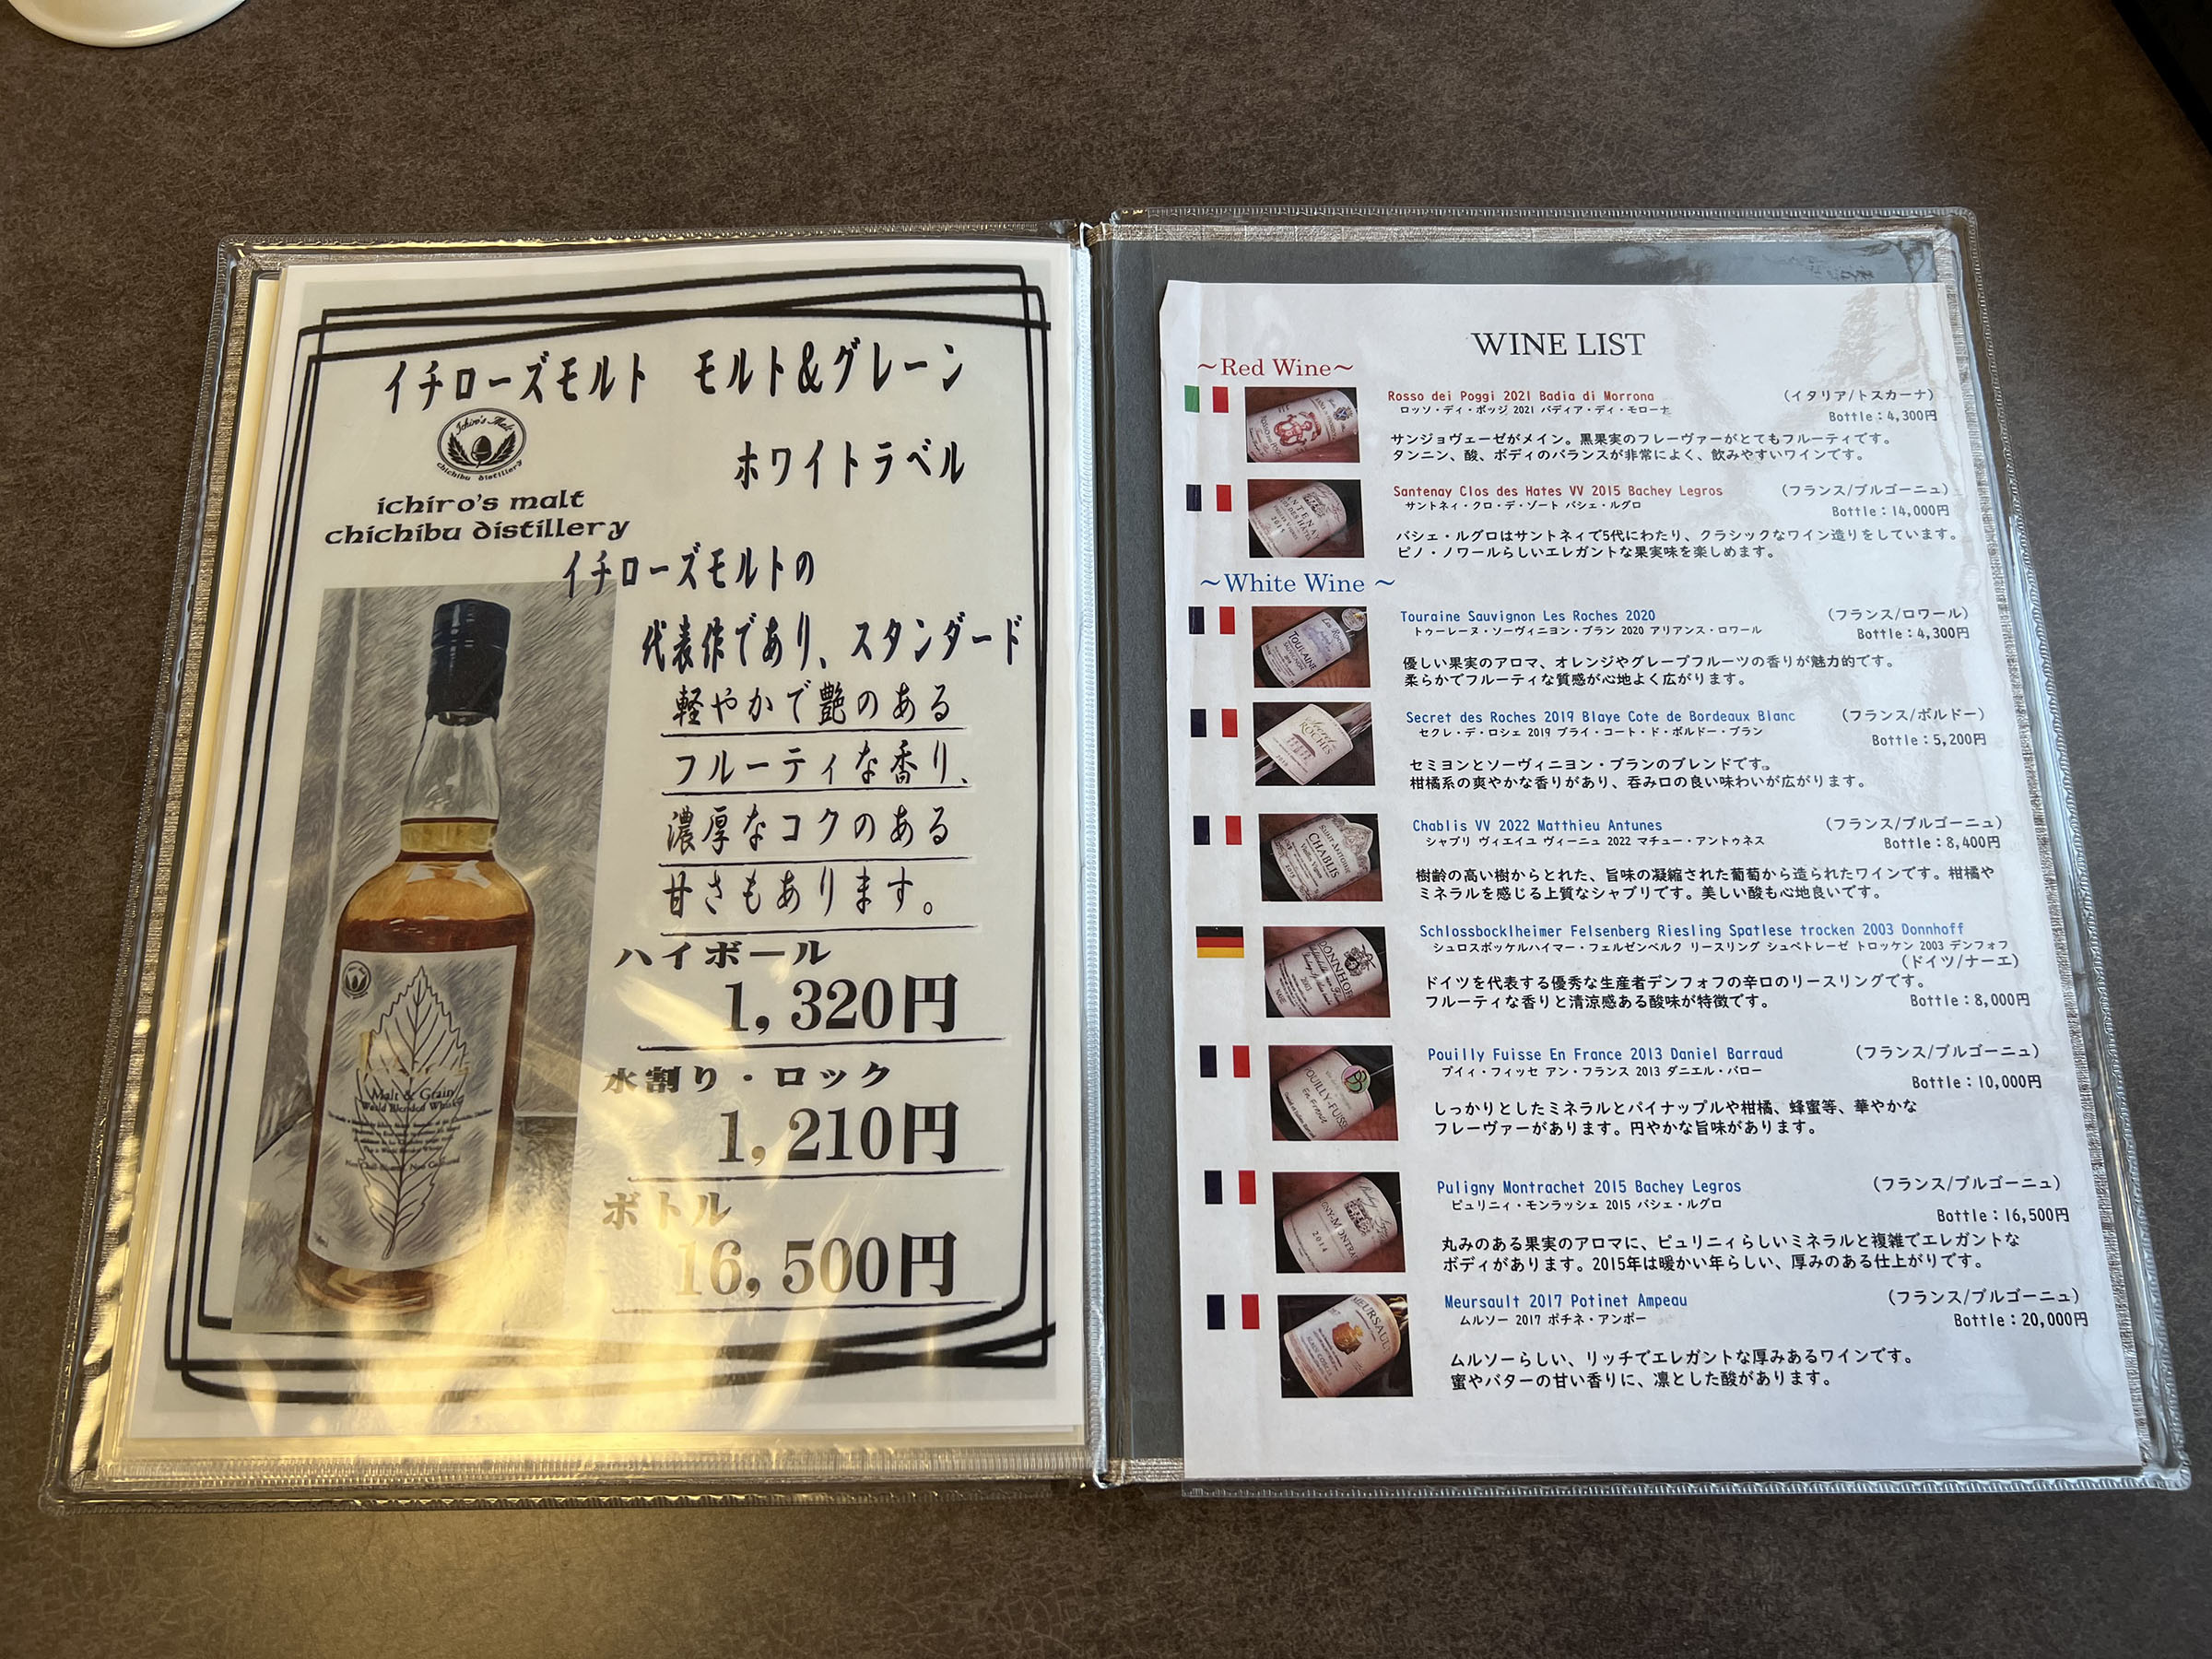 イチローズモルト モルト&グレーン
ホワイトラベル
Ichiro's Malt
chichibu distillery
ichiro's malt
chichibu distillery
イチローズモルトの
代表作であり、スタンダード
軽やかで艶のある
フルーティな香り、
濃厚なコクのある
甘さもあります。
ハイボール
1,320円
水割り・ロック
1,210円
ボトル
16,500円
Malt & Grain
World Blended Whisky
WINE LIST
~Red Wine~
Rosso dei Poggi 2021 Badia di Morrona (イタリア/トスカーナ)
ロッソ・ディ・ポッジ 2021 バディア・ディ・モローナ Bottle:4,300円
サンジョヴェーゼがメイン。黒果実のフレーヴァーがとてもフルーティです。
タンニン、酸、ボディのバランスが非常によく、飲みやすいワインです。
Santenay Clos des Hates VV 2015 Bachey Legros (フランス/ブルゴーニュ)
サントネィ・クロ・デ・ゾート バシェ・ルグロ Bottle:14,000円
バシェ・ルグロはサントネィで5代にわたり、クラシックなワイン造りをしています。
ピノ・ノワールらしいエレガントな果実味を楽しめます。
~White Wine ~
Touraine Sauvignon Les Roches 2020 (フランス/ロワール)
トゥーレーヌ・ソーヴィニヨン・ブラン 2020 アリアンス・ロワール Bottle:4,300円
優しい果実のアロマ、オレンジやグレープフルーツの香りが魅力的です。
柔らかでフルーティな質感が心地よく広がります。
Secret des Roches 2019 Blaye Cote de Bordeaux Blanc (フランス/ボルドー)
セクレ・デ・ロシェ 2019 ブライ・コート・ド・ボルドー・ブラン Bottle:5,200円
セミヨンとソーヴィニヨン・ブランのブレンドです。
柑橘系の爽やかな香りがあり、呑み口の良い味わいが広がります。
Chablis VV 2022 Matthieu Antunes (フランス/ブルゴーニュ)
シャブリ ヴィエイユ ヴィーニュ 2022 マチュー・アントゥネス Bottle:8,400円
樹齢の高い樹からとれた、旨味の凝縮された葡萄から造られたワインです。柑橘や
ミネラルを感じる上質なシャブリです。美しい酸も心地良いです。
Schlossbocklheimer Felsenberg Riesling Spatlese trocken 2003 Donnhoff
シュロスボッケルハイマー・フェルゼンベルク リースリング シュペトレーゼ トロッケン 2003 デンフォフ
(ドイツ/ナーエ)
ドイツを代表する優秀な生産者デンフォフの辛口のリースリングです。
フルーティな香りと清涼感ある酸味が特徴です。 Bottle:8,000円
Pouilly Fuisse En France 2013 Daniel Barraud (フランス/ブルゴーニュ)
プイィ・フィッセ アン・フランス 2013 ダニエル・バロー Bottle:10,000円
しっかりとしたミネラルとパイナップルや柑橘、蜂蜜等、華やかな
フレーヴァーがあります。円やかな旨味があります。
Puligny Montrachet 2015 Bachey Legros (フランス/ブルゴーニュ)
ピュリニィ・モンラッシェ 2015 バシェ・ルグロ Bottle:16,500円
丸みのある果実のアロマに、ピュリニィらしいミネラルと複雑でエレガントな
ボディがあります。2015年は暖かい年らしい、厚みのある仕上がりです。
Meursault 2017 Potinet Ampeau (フランス/ブルゴーニュ)
ムルソー 2017 ポチネ・アンポー Bottle:20,000円
ムルソーらしい、リッチでエレガントな厚みあるワインです。
蜜やバターの甘い香りに、凛とした酸があります。